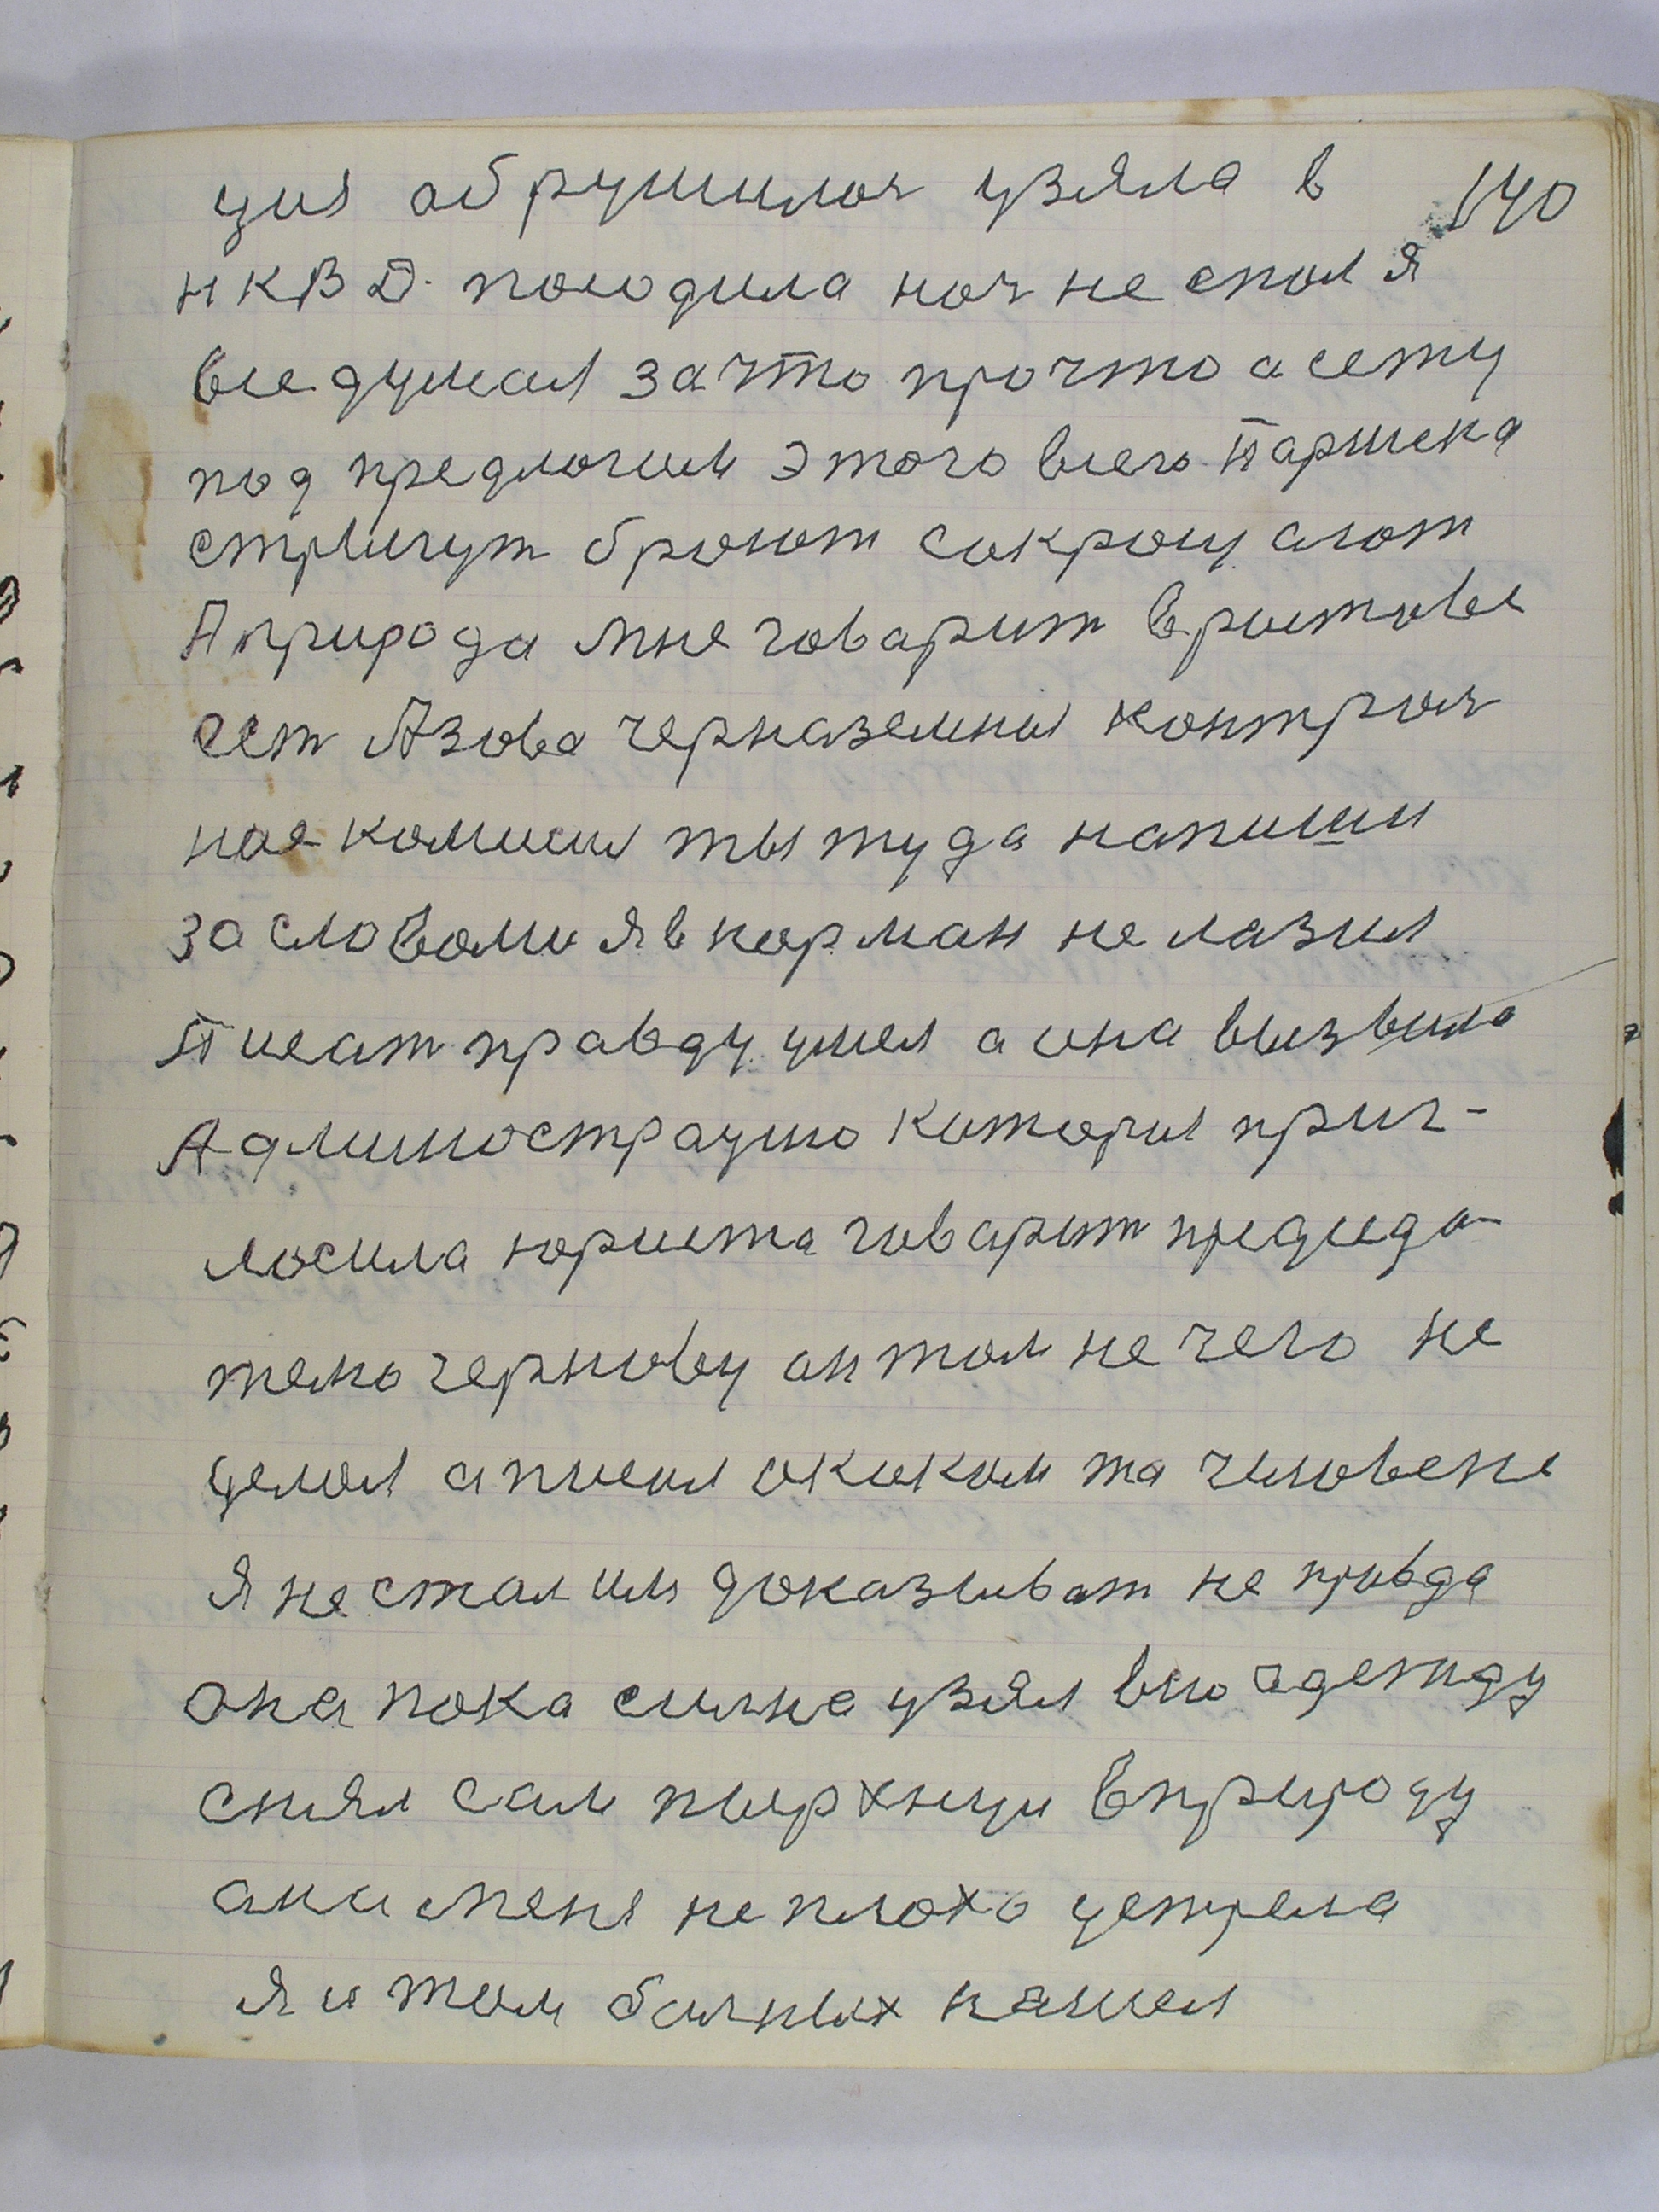 ция абрушилас узяла в 140
НКВД. посодила ноч не спал я
все думал за что прочто а сету
под предлогим этого всего Паршена
стрыгут бриют сокрощ ают
А природа мне говарит вростове
ест Азова черназемный контрол
ная комисия ты туда напиши
за словами я в карман не лазил
Писат правду умел а она вызвила
Администрацию которыяприг-
ласила юриста говарит предсида
телю чернову он там не чего не
делал а писал окаком та человеке
Я не стал им доказыват не правда
она пока силне узял всю адежду
снял сам пырхнул вприроду
ана меня не плохо устрела
Я и там балных нашел